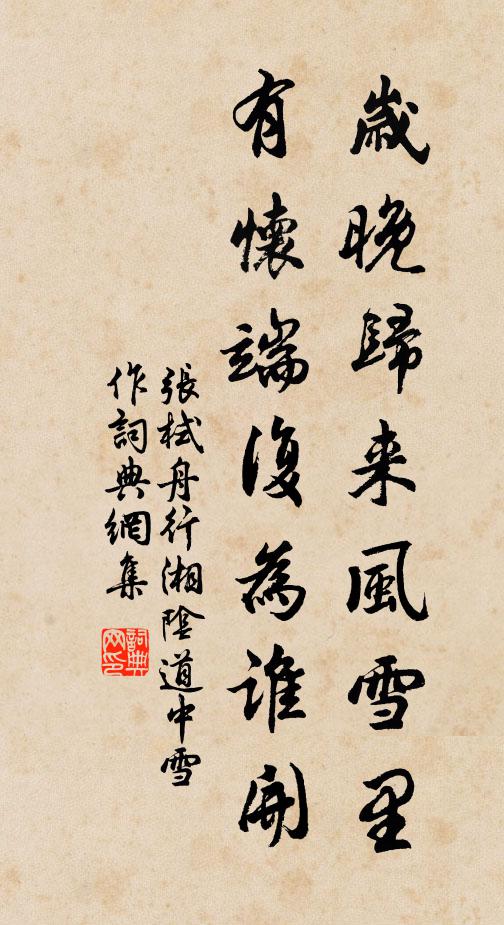 歲晚歸来風雪里
有懷端復為誰開
張栻舟行湘陰道中雪
作詞典網集
詞典
网印